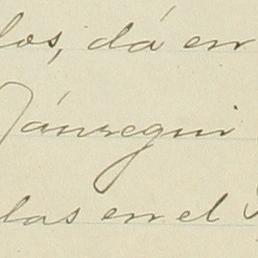 los, dá en
Jánregui
las en el